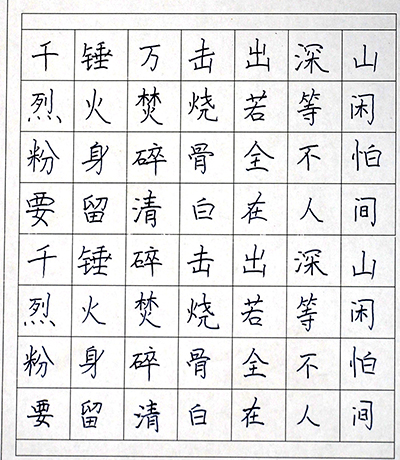 千锤万击出深山
烈火焚烧若等闲
粉身碎骨全不怕
要留清白在人间
千锤碎击出深山
烈火焚烧若等闲
粉身碎骨全不怕
要留清白在人间